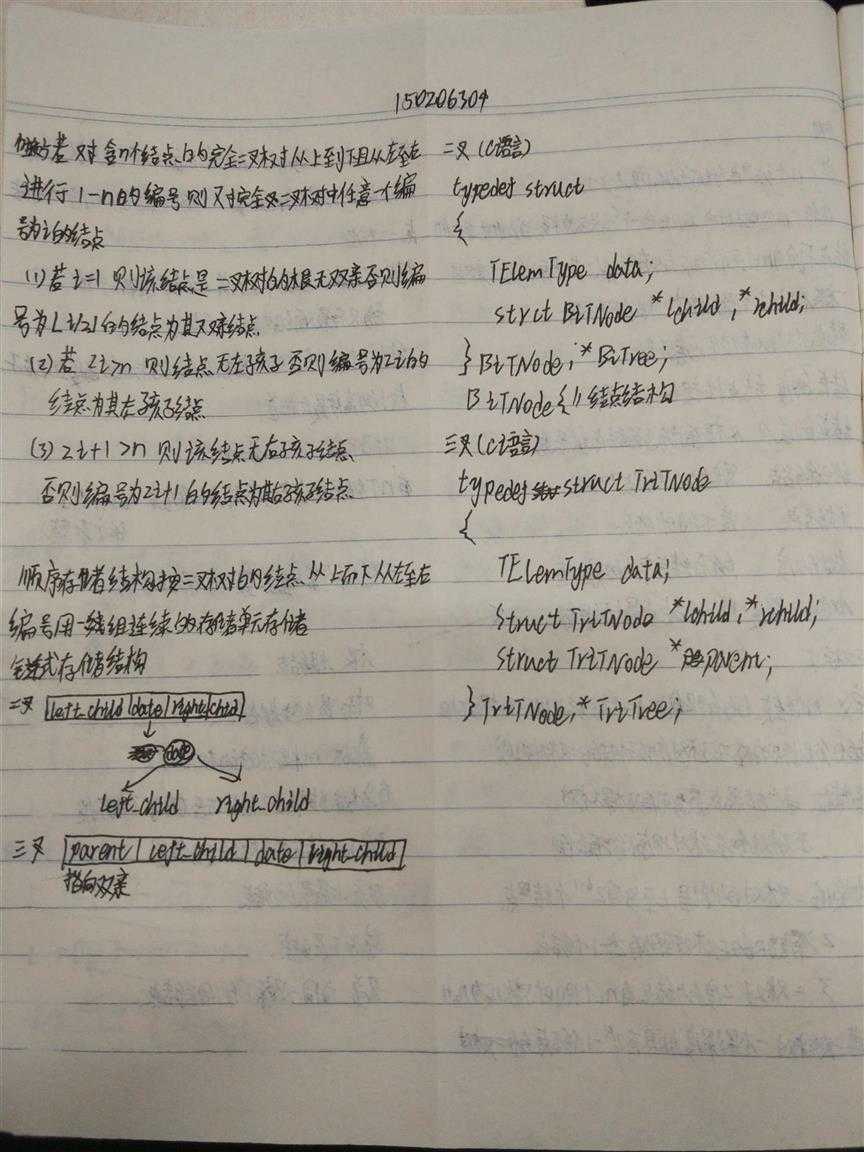 150206304
对含n个结点的完全二叉树从上到下且从左至右
进行1-n的编号则对完全二叉树中任意一个编
号为i的结点
(1)若i=1则该结点是二叉树的根无双亲否则编
号为⌊i/2⌋的结点为其双亲结点
(2)若2i>n则结点无左孩子否则编号为2i的
结点为其左孩子结点
(3)2i+1>n则该结点无右孩子结点
否则编号为2i+1的结点为其右孩子结点
顺序存储结构按二叉树的结点从上而下从左至右
编号用一组连续的存储单元存储
链式存储结构
二叉 left_child|date|right_child
date
left_child right_child
三叉 parent|left_child|date|right_child
指向双亲
二叉(C语言)
typedef struct
{
TElemType data;
struct BiTNode *lchild,*rchild;
}BiTNode,*BiTree;
BiTNode{//结点结构
三叉(C语言)
typedef struct TriTNode
{
TElemType data;
struct TriTNode *lchild,*rchild;
struct TriTNode *parent;
}TriTNode,*TriTree;